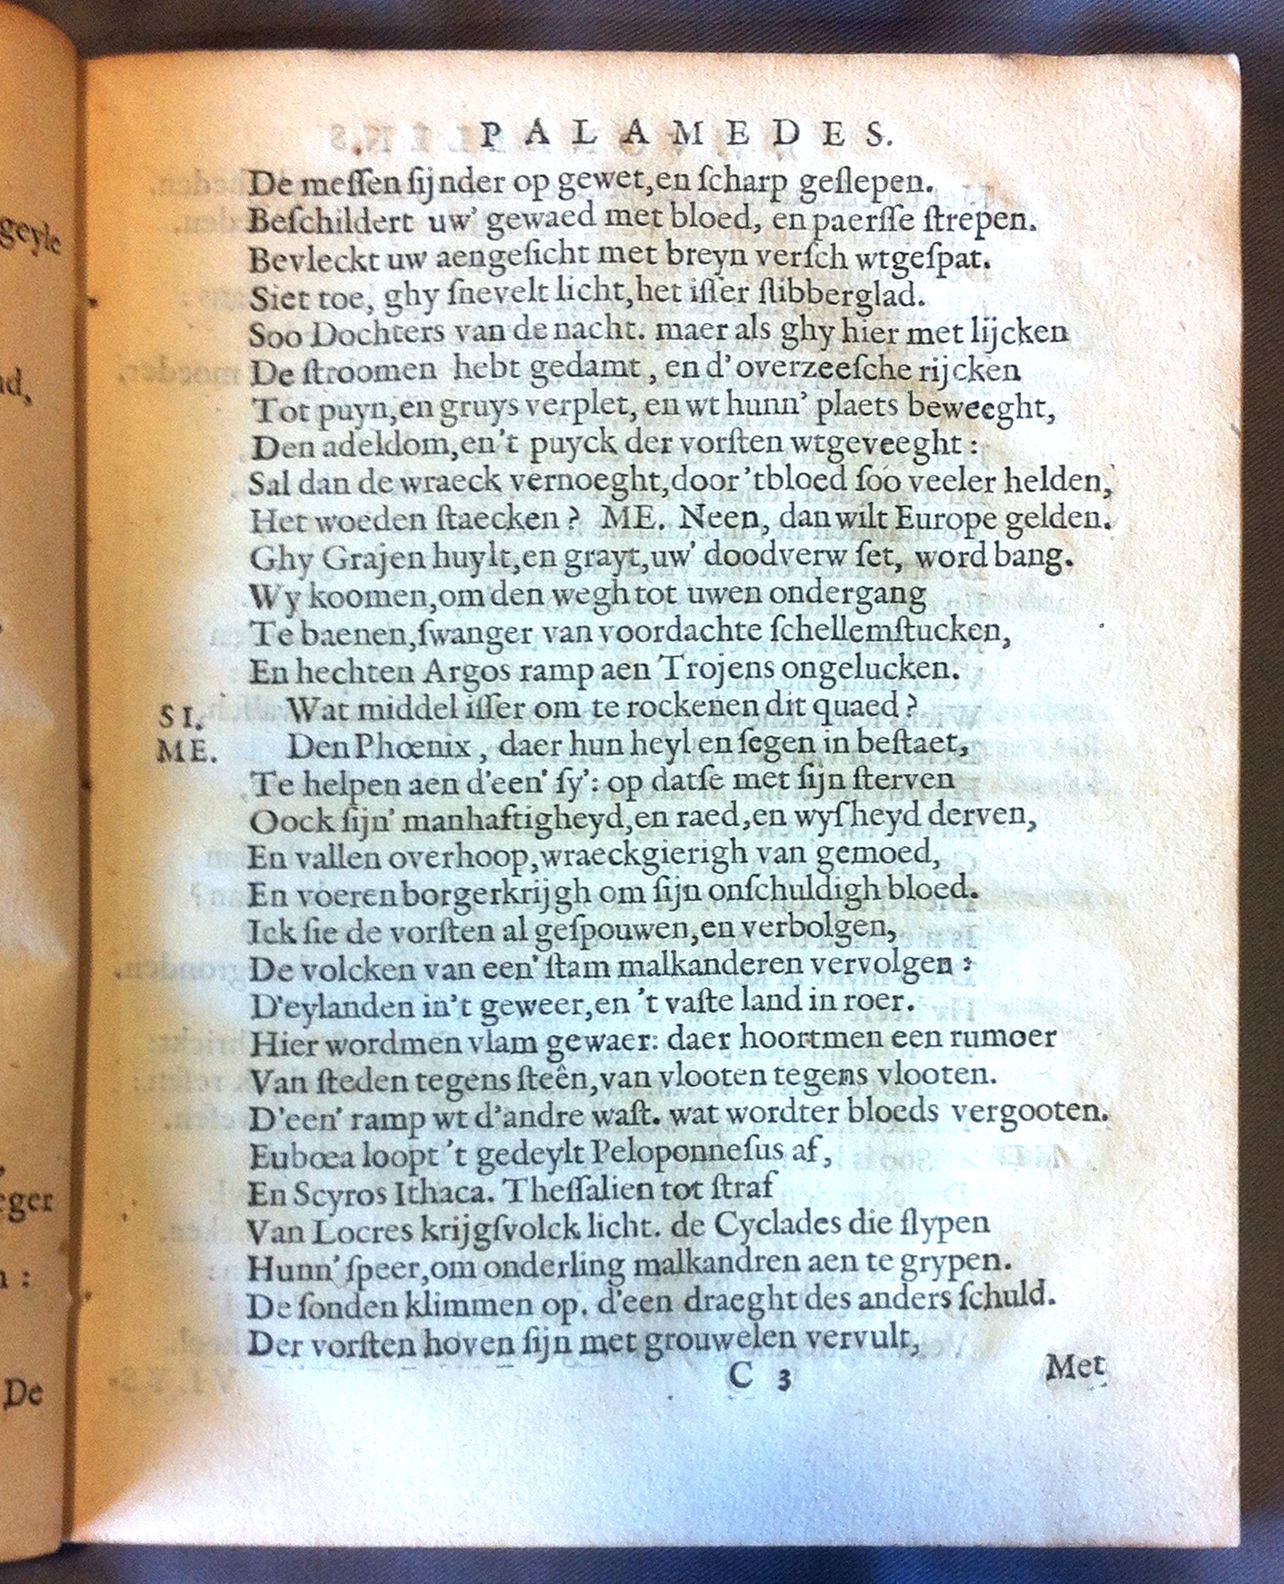 PALAMEDES.
De meſſen ſijnder op gewet,en ſcharp geſlepen.
Beſchildert uw' gewaed met bloed, en paerſſe ſtrepen.
Bevleckt uw aengeſicht met breyn verſch wtgeſpat.
Siet toe, ghy ſnevelt licht,het iſſer ſlibberglad.
Soo Dochters van de nacht. maer als ghy hier met lijcken
De ſtroomen hebt gedamt, en d'overzeeſche rijcken
Tot puyn,en gruys verplet, en wt hunn' plaets beweeght,
Den adeldom,en't puyck der vorſten wtgeveeght:
Sal dan de wraeck vernoeght,door'tbloed ſoo veeler helden,
Het woeden ſtaecken? ME. Neen, dan wilt Europe gelden.
Ghy Grajen huylt,en grayt,uw' doodverw ſet, word bang.
Wy koomen,om den wegh tot uwen ondergang
Te baenen,ſwanger van voordachte ſchellemſtucken,
En hechten Argos ramp aen Trojens ongelucken.
SI. Wat middel iſſer om te rockenen dit quaed?
ME. Den Phœnix, daer hun heyl en ſegen in beſtaet,
Te helpen aen d'een' ſy': op datſe met ſijn ſterven
Oock ſijn' manhaftigheyd,en raed,en wyſheyd derven,
En vallen overhoop,wraeckgierigh van gemoed,
En voeren borgerkrijgh om ſijn onſchuldigh bloed.
Ick ſie de vorſten al geſpouwen,en verbolgen,
De volcken van een' ſtam malkanderen vervolgen:
D'eylanden in't geweer,en 't vaſte land in roer.
Hier wordmen vlam gewaer: daer hoortmen een rumoer
Van ſteden tegens ſteên,van vlooten tegens vlooten.
D'een' ramp wt d'andre waſt. wat wordter bloeds vergooten.
Eubœa loopt 't gedeylt Peloponneſus af,
En Scyros Ithaca. Theſſalien tot ſtraf
Van Locres krijgſvolck licht. de Cyclades die ſlypen
Hunn' ſpeer,om onderling malkandren aen te grypen.
De ſonden klimmen op. d'een draeght des anders ſchuld.
Der vorſten hoven ſijn met grouwelen vervult,
C 3 Met
geyle
De